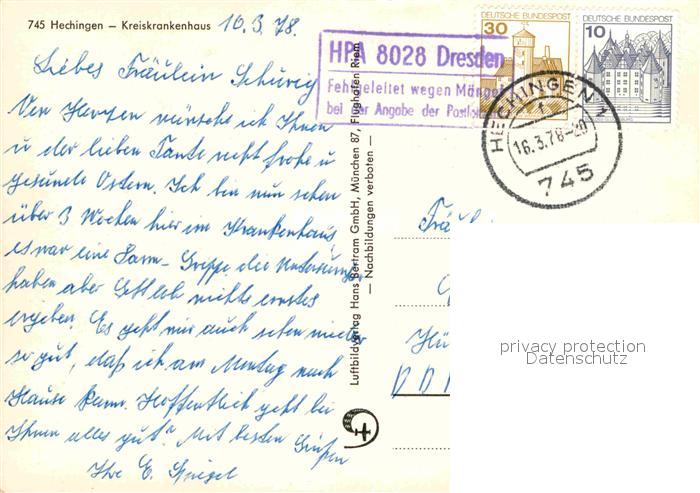 745 Hechingen – Kreiskrankenhaus 16.3.78.
Liebes Fräulein Schurig
Von Herzen wünsche ich Ihnen
u der lieben Tante recht frohe u
gesunde Ostern. Ich bin nun schon
über 3 Wochen hier im Krankenhaus,
es war eine Darm-Grippe die Untersungen
haben aber Gottlob nichts ernstes
ergeben. Es geht mir auch schon wieder
so gut, daß ich am Montag nach
Hause kann. Hoffentlich geht es bei
Ihnen alles gut? Mit besten Grüßen
Ihre E. Spiegel
HPA 8028 Dresden
Fehlgeleitet wegen Mängel
bei der Angabe der Postleit
DEUTSCHE BUNDESPOST
30
DEUTSCHE BUNDESPOST
10
HECHINGEN 1
16.3.78
745
Luftbildverlag Hans Bertram GmbH, München 87, Flughafen Riem
— Nachbildungen verboten —
Frä
Hü
DD
privacy protection
Datenschutz